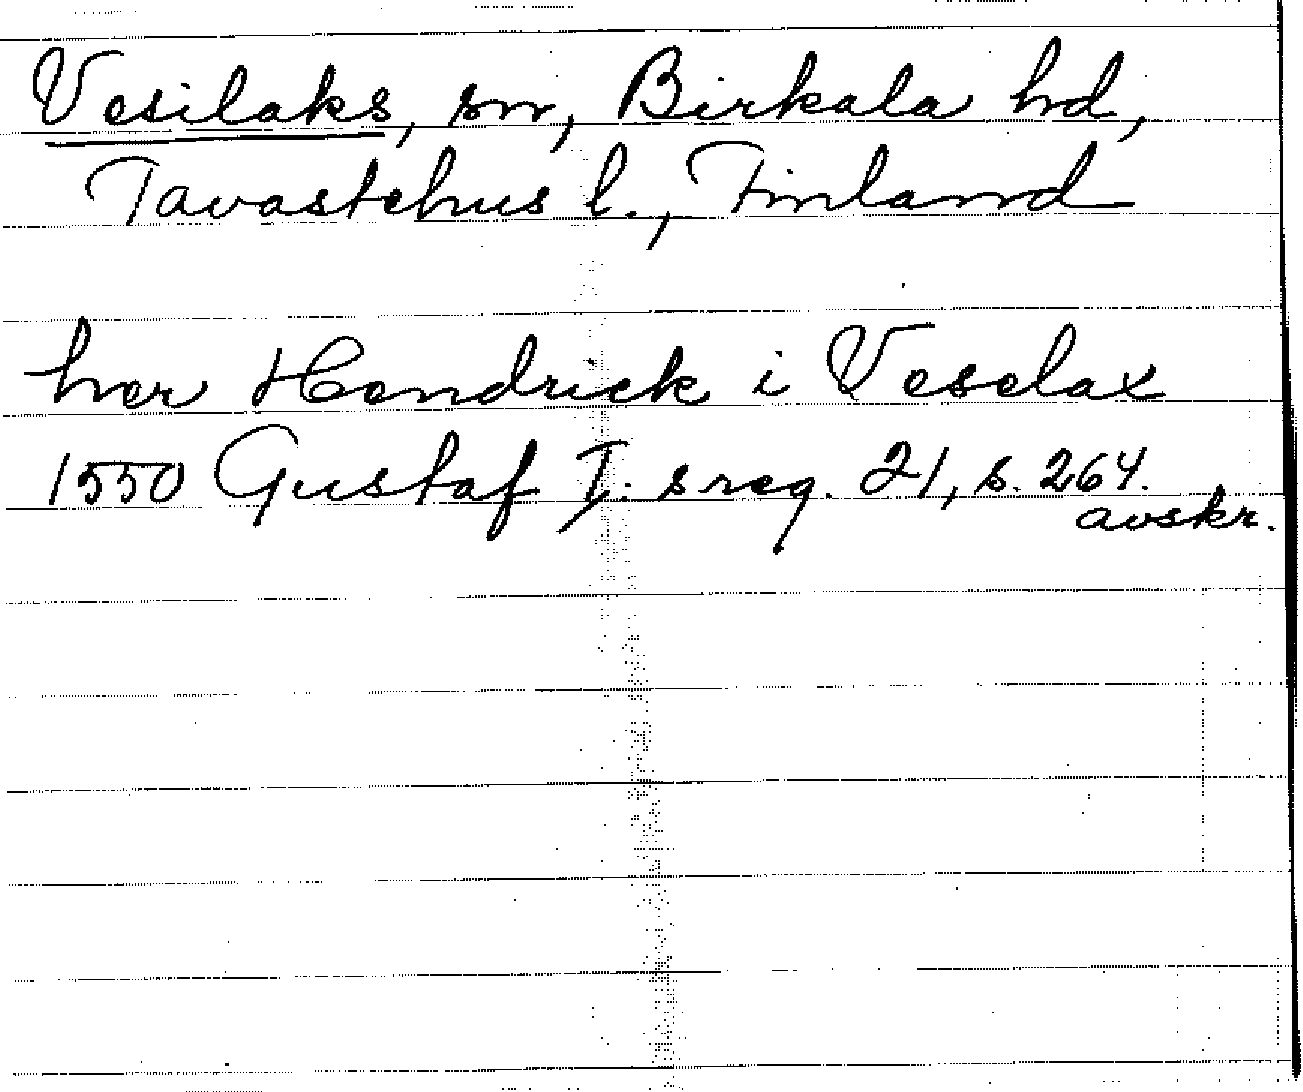 Vesilaks, sn, Birkala hd,
Tavastehus l., Finland
her Hendrick i Veselax
1550 Gustaf I:s reg. 21, s. 264.
avskr.